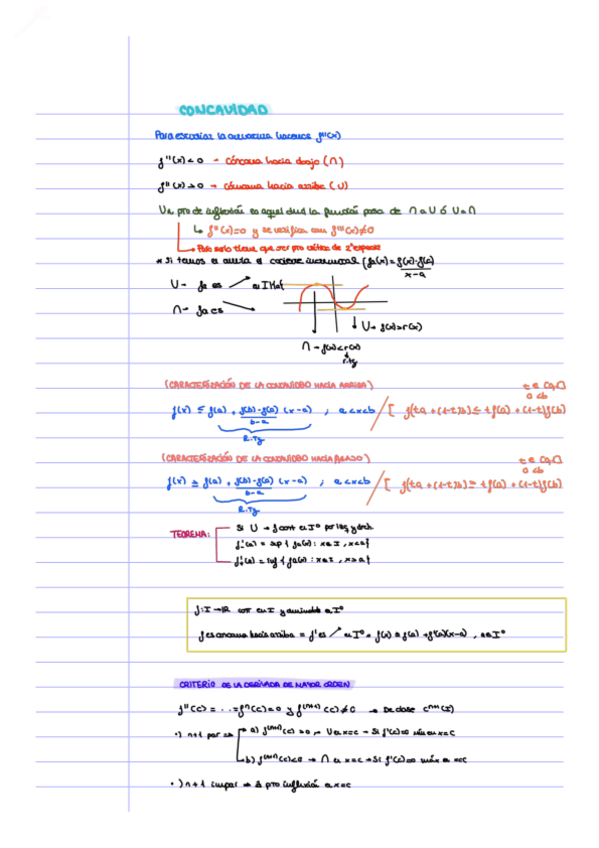 CONCAVIDAD
Para estudiar la curvatura hacemos f''(x)
f''(x) < 0 → cóncava hacia abajo (∩)
f''(x) > 0 → cóncava hacia arriba (U)
Un pto de inflexión es aquel donde la función pasa de ∩ a U ó U a ∩
↳ f''(x)=0 y se verifica con f'''(x)≠0
* Si tenemos el cociente incremental (fa(x) = f(x)-f(a) / x-a
U → fa es ↗ en I\{a}
∩ → fa es ↘
↓ U → f(x)>r(x)
∩ → f(x)<r(x)
r.tg
(CARACTERIZACIÓN DE LA CONCAVIDAD HACIA ARRIBA) t ∈ [0,1] a<b
f(x) ≤ f(a) + f(b)-f(a) / b-a (x-a) ; a<x<b / [ f(ta + (1-t)b) ≤ t f(a) + (1-t) f(b)
R.Tg
(CARACTERIZACIÓN DE LA CONCAVIDAD HACIA ABAJO) t ∈ [0,1] a<b
f(x) ≥ f(a) + f(b)-f(a) / b-a (x-a) ; a<x<b / [ f(ta + (1-t)b) ≥ t f(a) + (1-t) f(b)
R.Tg
TEOREMA: Si U → f cont en I° por izq y dcha
f'-(a) = sup { fa(x) : x∈I , x<a}
f'+(a) = inf { fa(x) : x∈I , x>a}
f: I → IR cont en I y derivable en I°
f es cóncava hacia arriba = f' es ↗ en I° = f(x) ≥ f(a) + f'(a)(x-a) , a∈I°
CRITERIO DE LA DERIVADA DE MAYOR ORDEN
f''(c) = ... = fⁿ(c) = 0 y f⁽ⁿ⁺¹⁾(c) ≠ 0 → De clase Cⁿ⁺¹(I)
·) n+1 par ⇒ a) f⁽ⁿ⁺¹⁾(c) > 0 → U en x=c → Si f'(c)=0 mín en x=c
b) f⁽ⁿ⁺¹⁾(c) < 0 → ∩ en x=c → Si f'(c)=0 máx en x=c
·) n+1 impar ⇒ pto inflexión en x=c